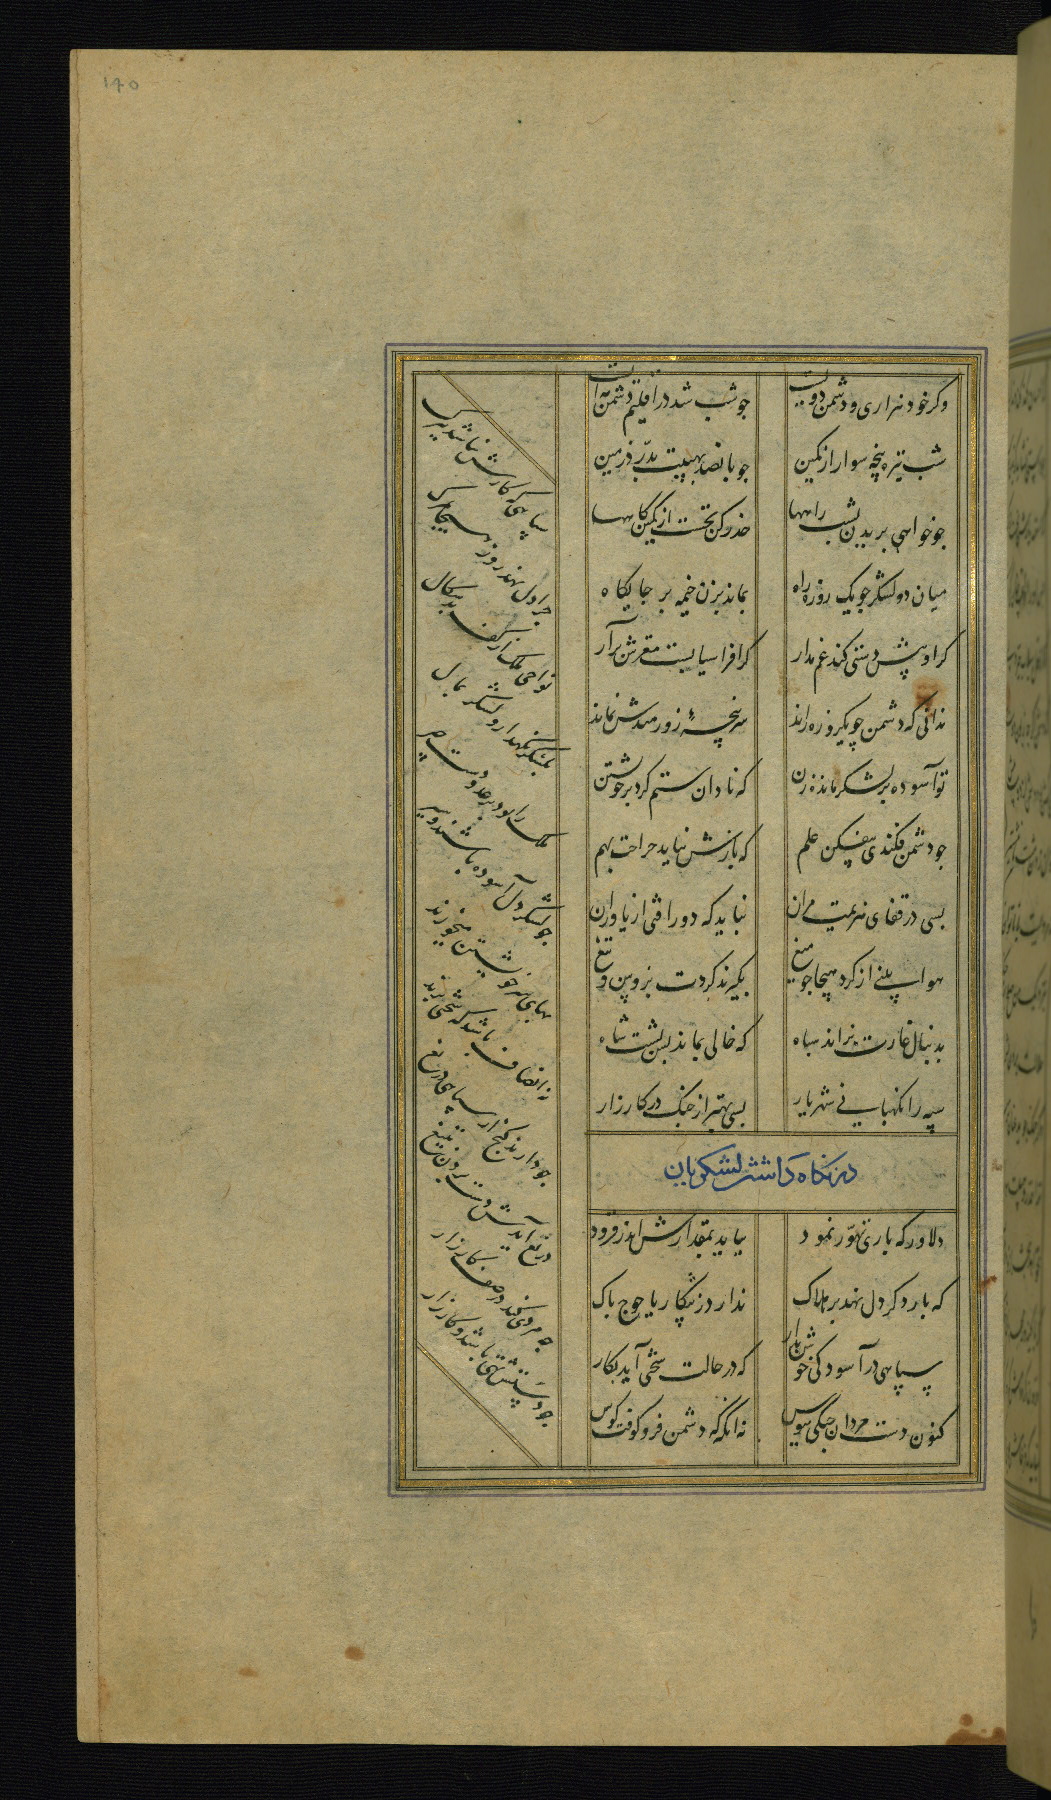 ۱۴۰
وکر خود هزاری و دشمن دویست
جو شب شد در اقلیم دشمن مه ایست
شب تیره پنجه سوار از کمین
جو پانصد بهیبت بدرد زمین
جو خواهی بریدن بشب راهها
حذر کن نخست از کمین کاهها
میان دو لشکر جو یک روزه راه
بماند بزن خیمه بر جایکاه
کر او پیش دستی کند غم مدار
کر افراسیابست مغزش برآر
ندانی که دشمن جو یکروزه راند
سر پنجهٔ زورمندش نماند
تو آسوده بر لشکر مانده زن
که نادان ستم کرد بر خویشتن
جو دشمن فکندی بیفکن علم
که بازش نیاید جراحت بهم
بسی در قفای هزیمت مران
نباید که دور افتی از یاوران
هوا بینی از کرد هیجا جو میغ
بکیرند کردت بزوبین و تیغ
بدنبال غارت نراند سپاه
که خالی بماند پس پشت شاه
سپه را نکهبانی شهریار
بسی بهتر از جنک در کارزار
در نکاه داشتن لشکریان
دلاور که باری تهور نمود
بباید بمقدارش اندر فزود
که بار دکر دل نهد بر هلاک
ندارد ز پیکار یاجوج باک
سپاهی در آسودکی خوش بدار
که در حالت سختی آید بکار
کنون دست مردان جنکی ببوس
نه آنکه که دشمن فرو کوفت کوس
سپاهی که کارش نباشد ببرک
جرا دل نهد روز هیجا بمرک
نواحی ملک از کف بدسکال
بلشکر نکهدار و لشکر بمال
ملک را بود بر عدو دست چیر
جو لشکر دل آسوده باشند و سیر
بهای سر خویشتن میخورند
نه انصاف باشد که سختی برند
جو دارند کنج از سپاهی دریغ
دریغ آیدش دست بردن بتیغ
چه مردی کند در صف کارزار
جو دستش تهی باشد و کارزار